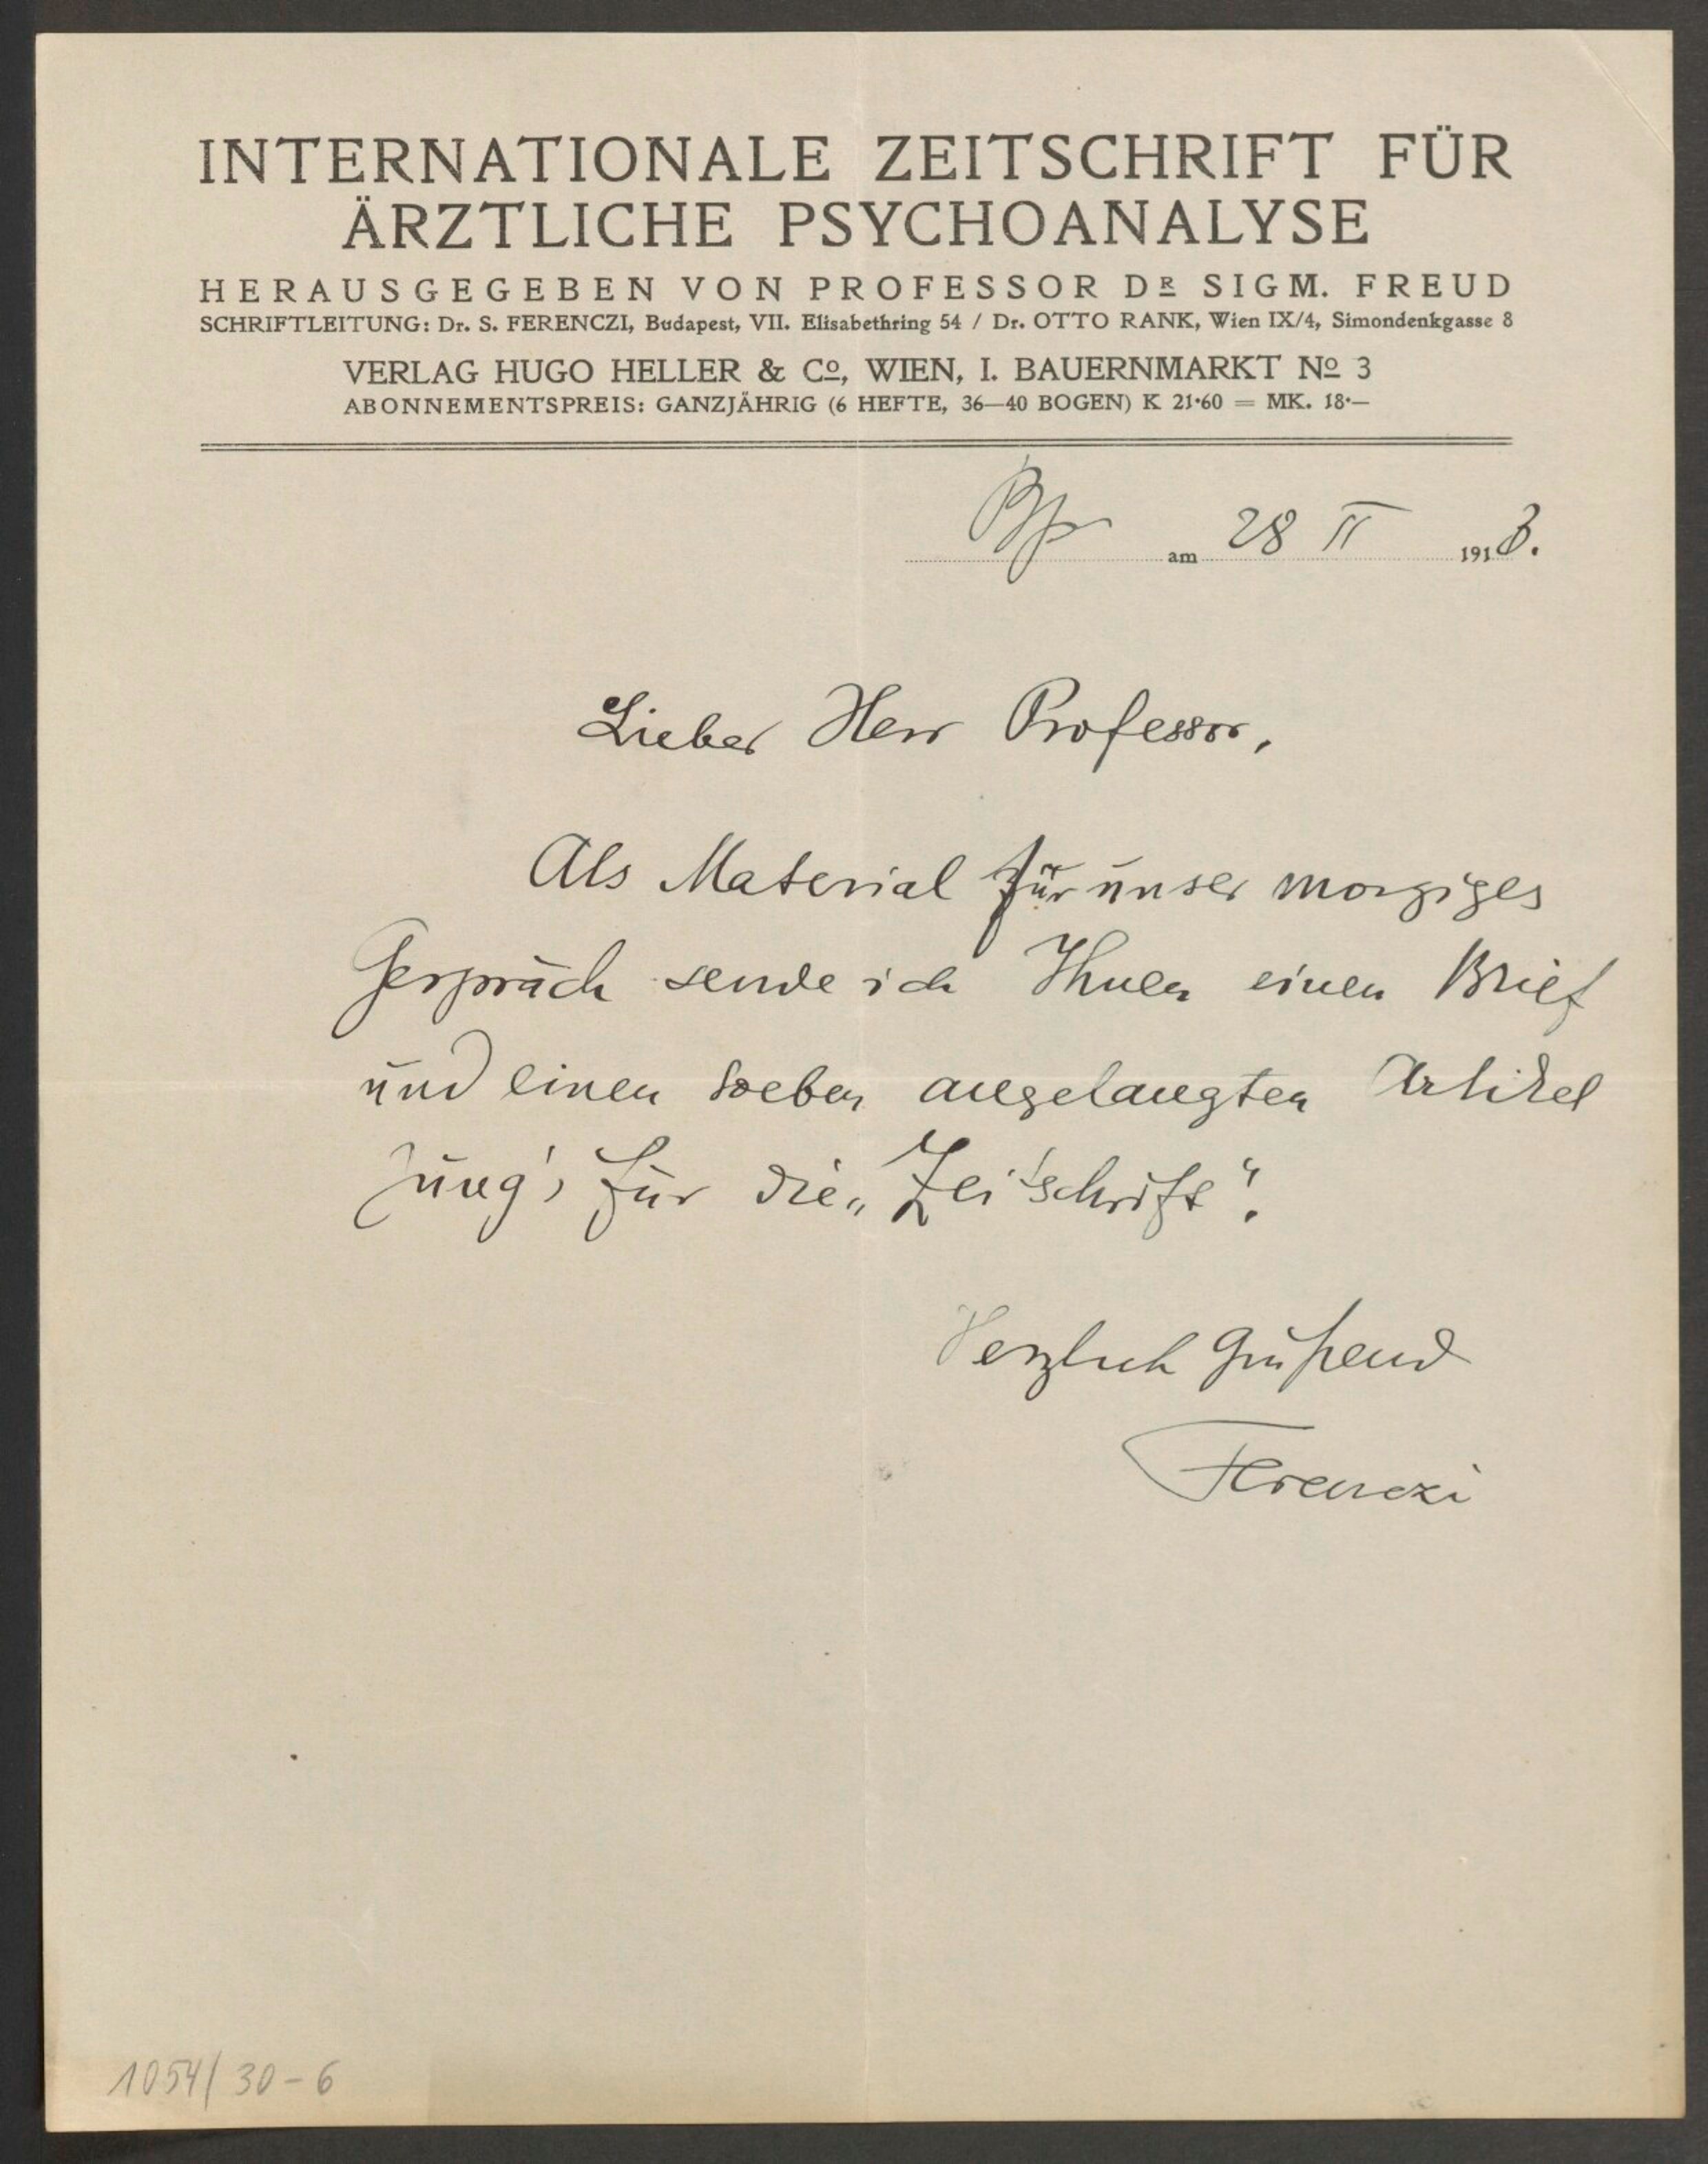 INTERNATIONALE ZEITSCHRIFT FÜR
ÄRZTLICHE PSYCHOANALYSE
HERAUSGEGEBEN VON PROFESSOR DR SIGM. FREUD
SCHRIFTLEITUNG: Dr. S. FERENCZI, Budapest, VII. Elisabethring 54 / Dr. OTTO RANK, Wien IX/4, Simondenkgasse 8
VERLAG HUGO HELLER & Co, WIEN, I. BAUERNMARKT No 3
ABONNEMENTSPREIS: GANZJÄHRIG (6 HEFTE, 36—40 BOGEN) K 21·60 = MK. 18·—
Bp am 28 II 1913.
Lieber Herr Professor,
Als Material für unser morgiges
Gespräch sende ich Ihnen einen Brief
und einen soeben angelangten Artikel
Jung's für die „Zeitschrift“.
Herzlich grüßend
Ferenczi
1054/30-6